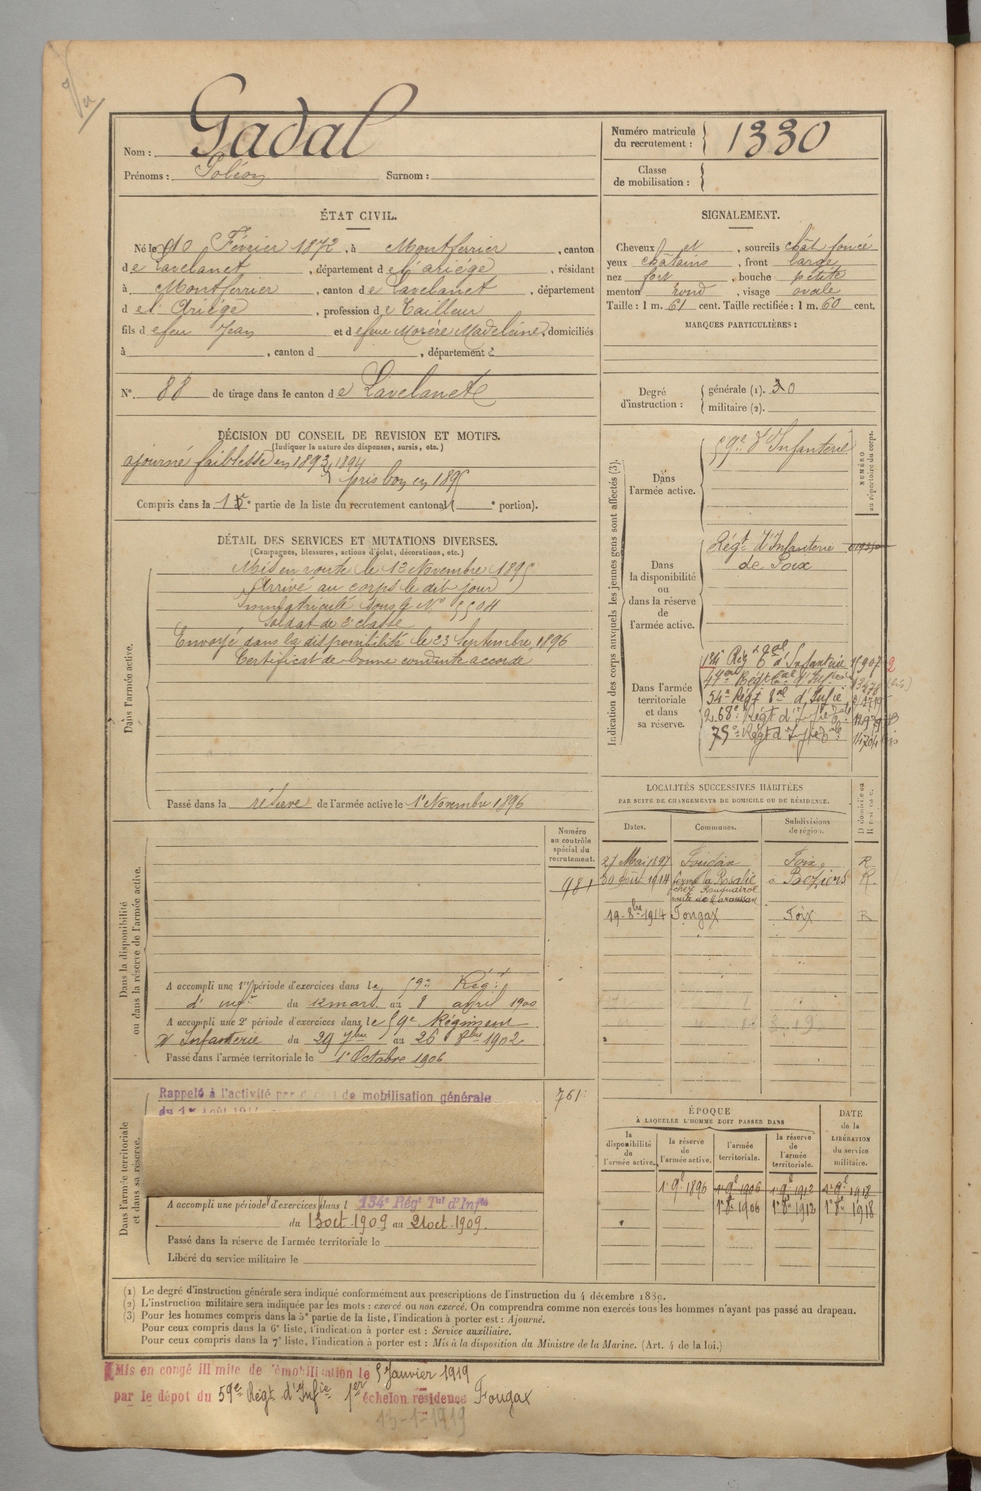 Nom : Gadal
Prénoms : Poléon Surnom :
Numéro matricule
du recrutement : 1330
Classe
de mobilisation :
ÉTAT CIVIL.
Né le 10 Février 1872, à Montferrier, canton
de Lavelanet, département de l'ariége, résidant
à Montferrier, canton de Lavelanet, département
de l'Ariége, profession de Tailleur
fils de feu Jean et de feue Morère Madeleine, domiciliés
à , canton d , département d
N° 88 de tirage dans le canton de Lavelanet
DÉCISION DU CONSEIL DE REVISION ET MOTIFS.
(Indiquer la nature des dispenses, sursis, etc.)
ajourné faiblesse en 1893, 1894
pris bon en 1895
Compris dans la 1e partie de la liste du recrutement cantonal ( e portion).
SIGNALEMENT.
Cheveux et , sourcils chât foncé
yeux châtains , front large
nez fort , bouche petite
menton rond , visage ovale
Taille : 1 m. 61 cent. Taille rectifiée : 1 m. 60 cent.
MARQUES PARTICULIÈRES :
Degré
d'instruction :
générale (1). 30
militaire (2).
DÉTAIL DES SERVICES ET MUTATIONS DIVERSES.
(Campagnes, blessures, actions d'éclat, décorations, etc.)
Dans l'armée active.
Mis en route le 13 Novembre 1895
Arrivé au corps le dit jour
Immatriculé sous le No 5504
Soldat de 2e classe
Envoyé dans la disponibilité le 23 Septembre 1896
Certificat de bonne conduite accordé
Passé dans la réserve de l'armée active le 1er Novembre 1896
Indication des corps auxquels les jeunes gens sont affectés (3).
NUMÉRO
au répertoire du corps.
Dans
l'armée active.
59e d'Infanterie
Dans
la disponibilité
ou
dans la réserve
de
l'armée active.
Régt d'Infanterie
de Foix
Dans l'armée
territoriale
et dans
sa réserve.
134 Rég tal d'Infanterie 15907
54e Régt tal d'Infie
268e Régt d'Infie
75e Régt d'Infie
LOCALITÉS SUCCESSIVES HABITÉES
PAR SUITE DE CHANGEMENTS DE DOMICILE OU DE RÉSIDENCE.
Dates. Communes. Subdivisions
de région.
27 Mai 1897 Foix R
30 août 1914 ferme la Rosalie Béziers R.
chez Rouquairol
19-8bre 1914 Fougax Foix R
Dans la disponibilité
ou dans la réserve de l'armée active.
Numéro
au contrôle
spécial du
recrutement.
981
A accompli une 1re période d'exercices dans le 59e Rég.t
d'infie du 12 mars au 8 avril 1900
A accompli une 2e période d'exercices dans le 59e Régiment
d'Infanterie du 29 7bre au 26 8bre 1902
Passé dans l'armée territoriale le 1er Octobre 1906
Dans l'armée territoriale
et dans sa réserve.
Rappelé à l'activité par décret de mobilisation générale
du 1er Août 1914
761
A accompli une période d'exercices dans l 134e Régt Tal d'Infie
du 13 oct 1909 au 21 oct 1909
Passé dans la réserve de l'armée territoriale le
Libéré du service militaire le
ÉPOQUE
À LAQUELLE L'HOMME DOIT PASSER DANS
DATE
de la
LIBÉRATION
du service
militaire.
la
disponibilité
de
l'armée active.
la réserve
de
l'armée active.
l'armée
territoriale.
la réserve
de
l'armée
territoriale.
1er 9b 1896 1er 9b 1906 1er 9b 1912 1er 9b 1918
1er 8b 1906 1er 8b 1912 1er 8b 1918
(1) Le degré d'instruction générale sera indiqué conformément aux prescriptions de l'instruction du 4 décembre 1889.
(2) L'instruction militaire sera indiquée par les mots : exercé ou non exercé. On comprendra comme non exercés tous les hommes n'ayant pas passé au drapeau.
(3) Pour les hommes compris dans la 5e partie de la liste, l'indication à porter est : Ajourné.
Pour ceux compris dans la 6e liste, l'indication à porter est : Service auxiliaire.
Pour ceux compris dans la 7e liste, l'indication à porter est : Mis à la disposition du Ministre de la Marine. (Art. 4 de la loi.)
Mis en congé illimité de démobilisation le 5 Janvier 1919
par le dépot du 59e Régt d'Infie 1er échelon résidence Fougax
13-1-1919